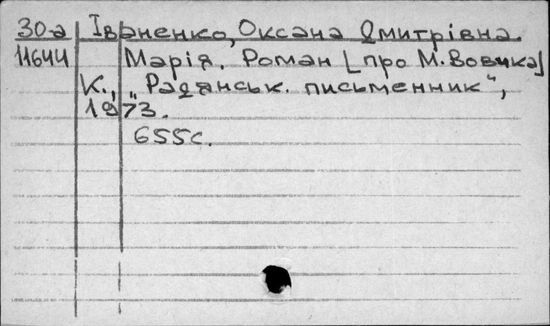 30-а Іваненко, Оксана Дмитрівна.
11644 Марія. Роман [про М. Вовчка]
К., „Радянськ. письменник“,
1973.
655с.